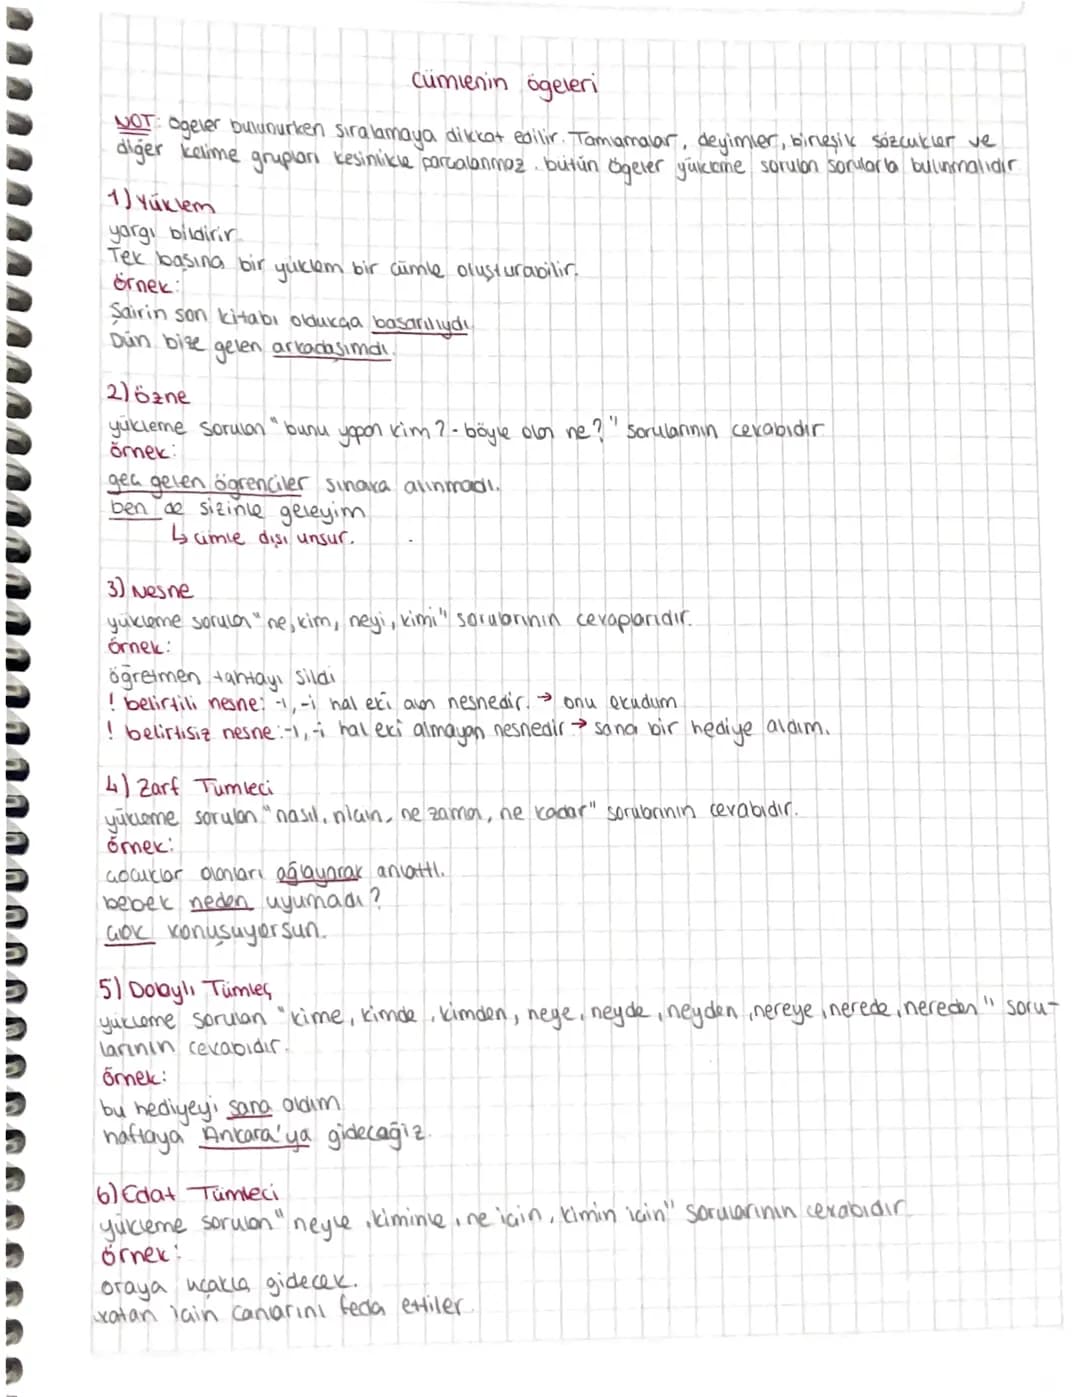 Cümlenin ögeleri
NOT: ögeler bulunurken sıralamaya dikkat edilir. Tamlamalar, deyimler, birleşik sözcükler ve
diğer kelime grupları kesinlikle parçalanmaz. bütün ögeler yükleme sorulan sorularla bulunmalıdır
1) Yüklem
yargı bildirir.
Tek başına bir yüklem bir cümle oluşturabilir.
örnek:
Şairin son kitabı oldukça başarılıydı
Dün bize gelen arkadaşımdı.
2) özne
yükleme sorulan "bunu yapan kim? - böyle olan ne?" sorularının cevabıdır
örnek:
geç gelen öğrenciler sınava alınmadı.
ben de sizinle geleyim
↳ cümle dışı unsur.
3) Nesne
yükleme sorulan "ne, kim, neyi, kimi" sorularının cevaplarıdır.
örnek:
öğretmen tahtayı sildi
! belirtili nesne: -ı, -i hal eki alan nesnedir. → onu okudum
! belirtisiz nesne: -ı, -i hal eki almayan nesnedir → sana bir hediye aldım.
4) Zarf Tümleci
yükleme sorulan "nasıl, niçin, ne zaman, ne kadar" sorularının cevabıdır.
örnek:
çocuklar olanları ağlayarak anlattı.
bebek neden uyumadı?
çok konuşuyorsun.
5) Dolaylı Tümleç
yükleme sorulan "kime, kimde, kimden, neye, neyde, neyden, nereye, nerede, nereden" soru-
larının cevabıdır.
örnek:
bu hediyeyi sana aldım
haftaya Ankara'ya gideceğiz.
6) Edat Tümleci
yükleme sorulan "neyle, kiminle, ne için, kimin için" sorularının cevabıdır
örnek:
oraya uçakla gidecek.
vatan için canlarını feda ettiler.